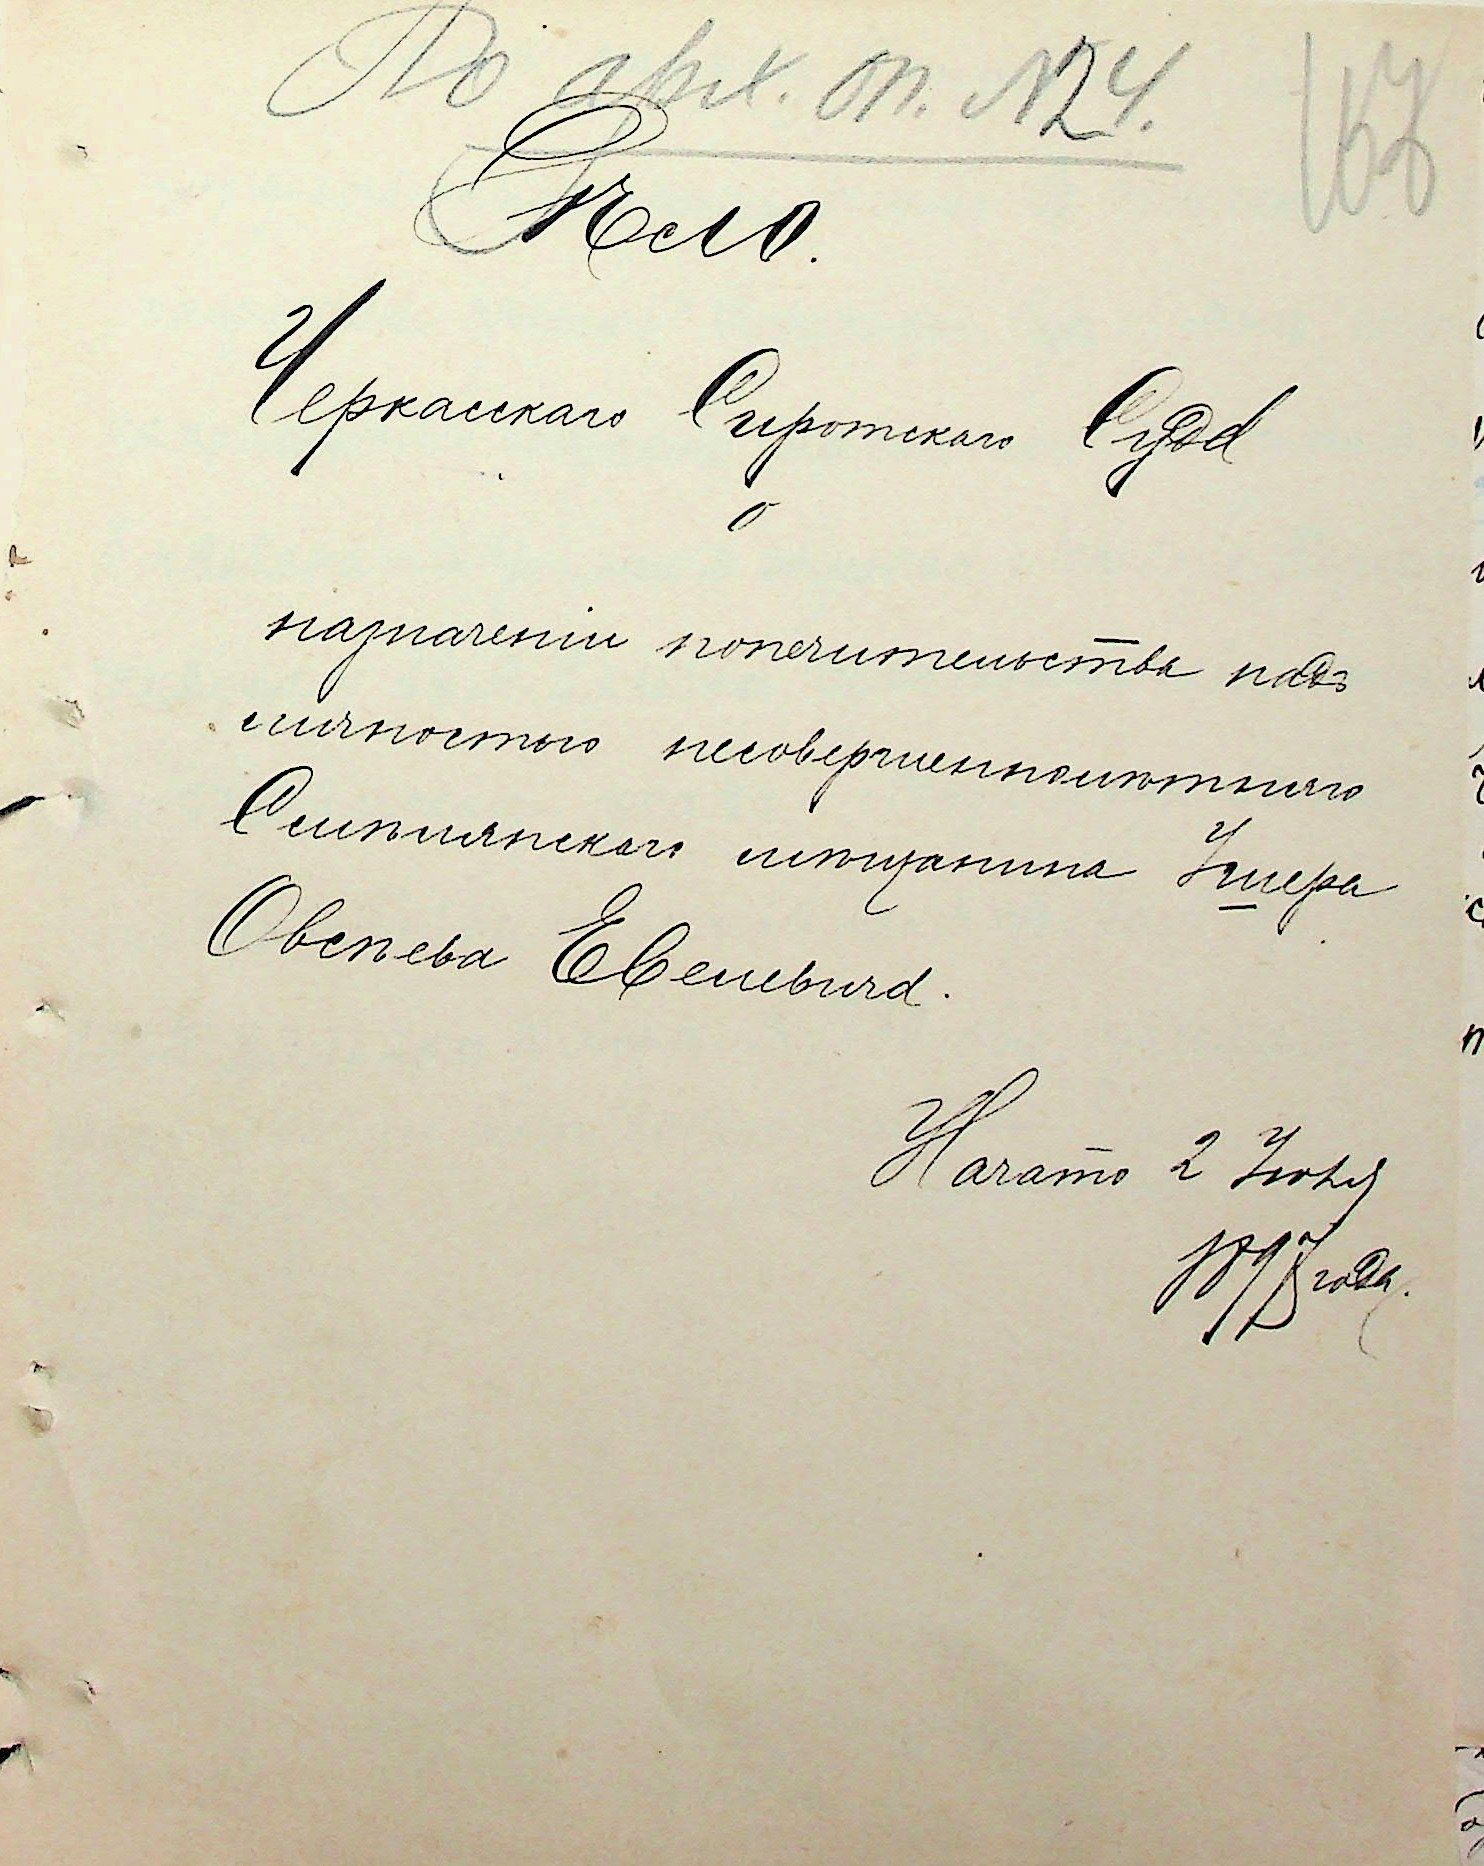 По арх. оп. № 24.
Дѣло.
Черкасскаго Сиротскаго Суда
о
назначеніи попечительства надъ
личностью несовершеннолѣтняго
Смѣлянскаго мѣщанина Ушера
Овсѣева
Начато 2 Іюня
года.